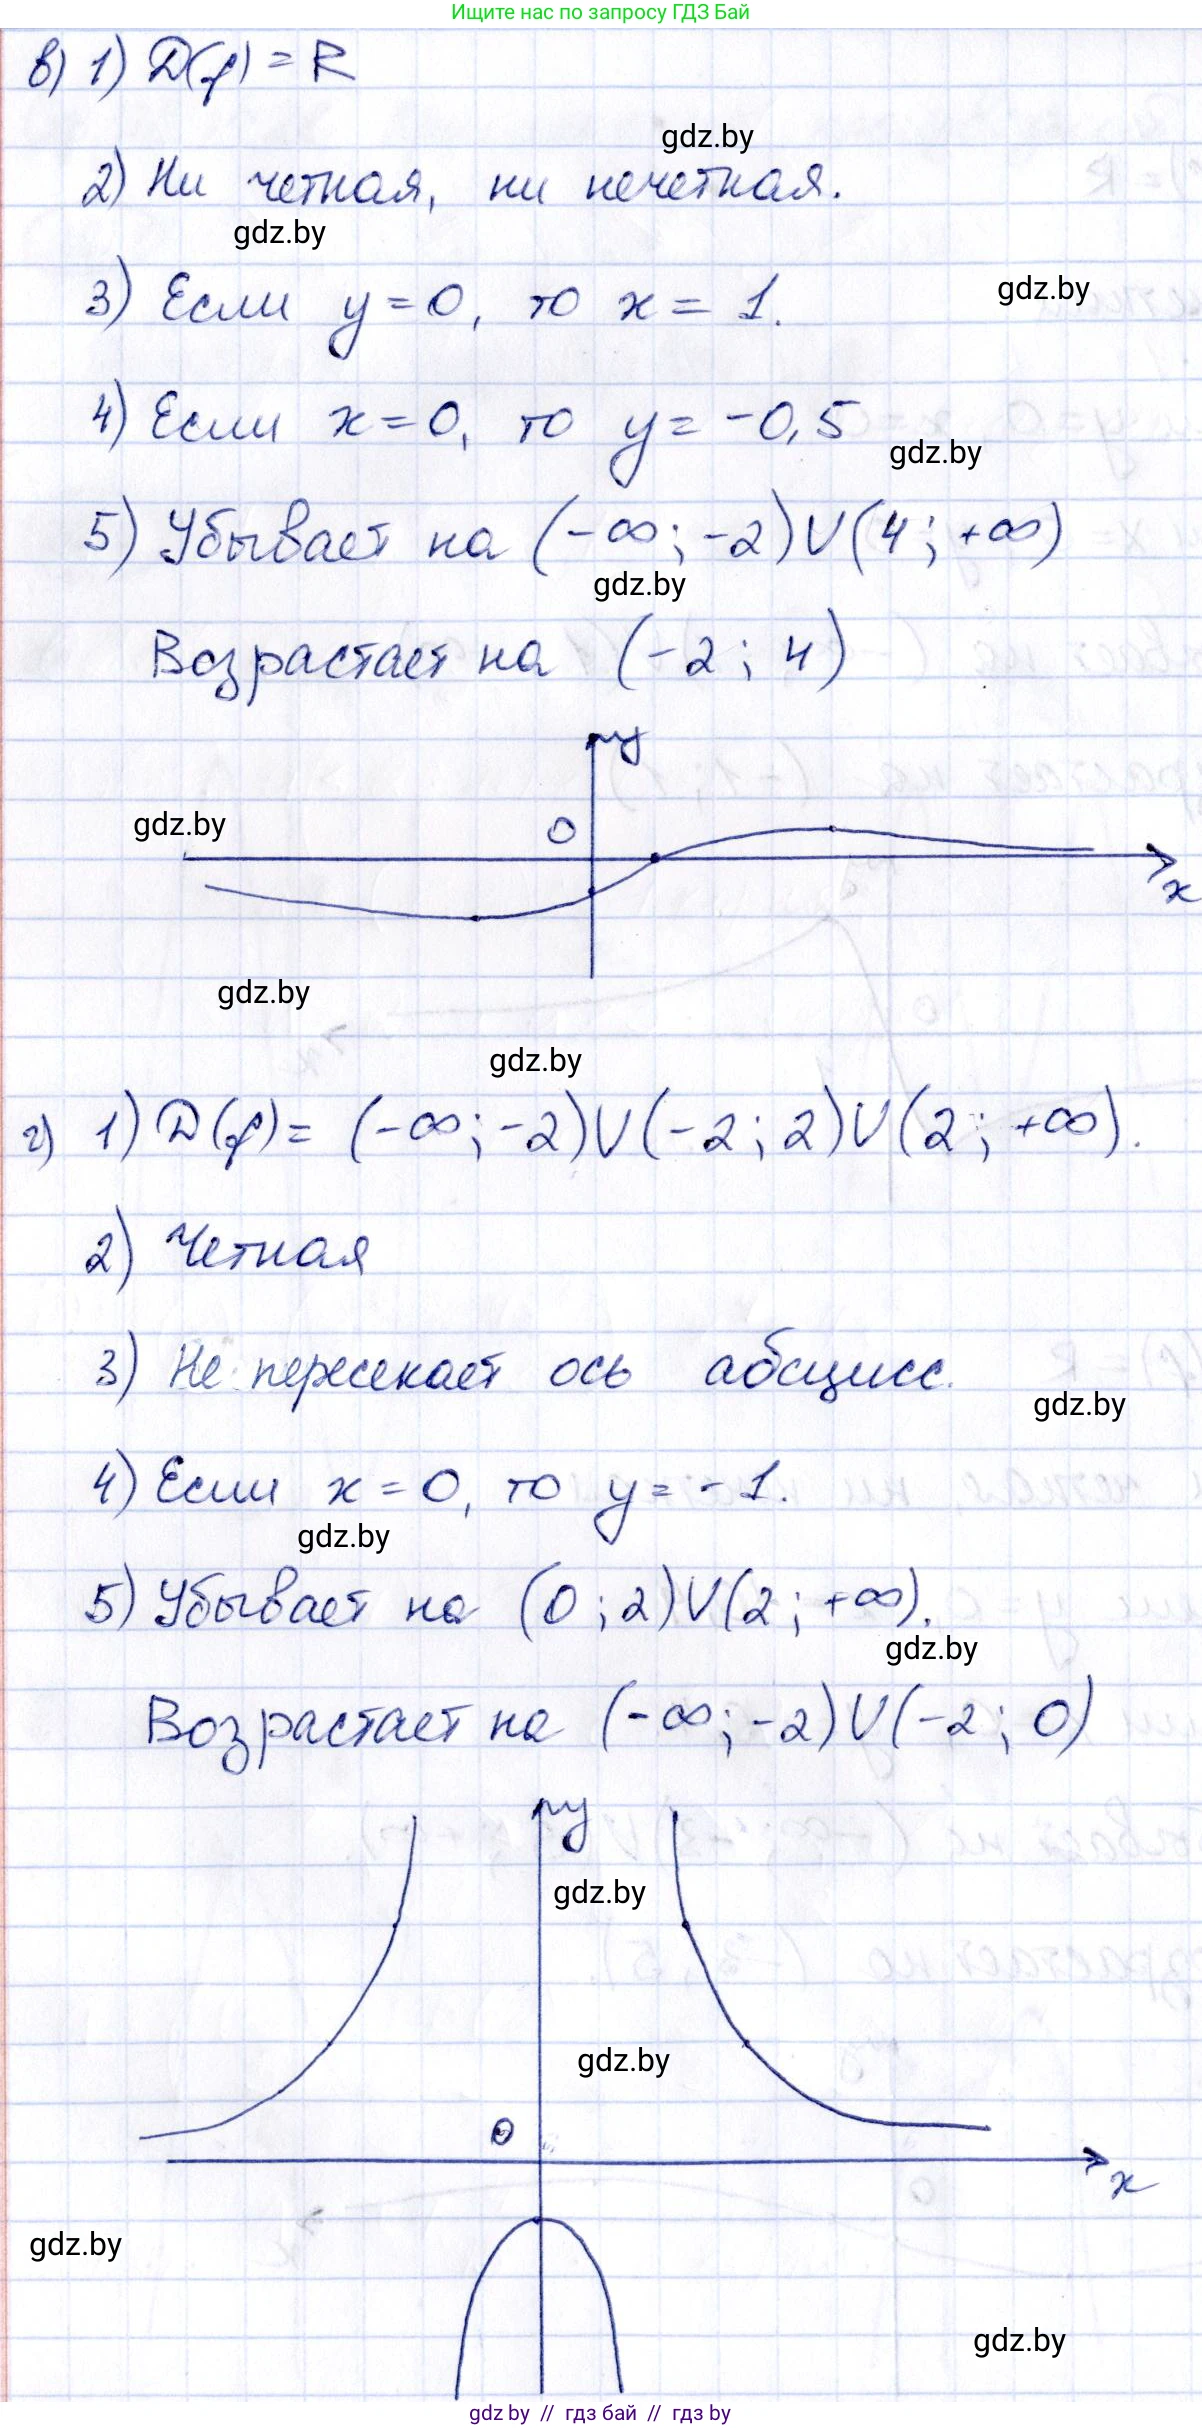 Ищите нас по запросу ГДЗ Бай
в) 1) D(f) = R
gdz.by
2) Ни четная, ни нечетная.
gdz.by
3) Если y = 0, то x = 1.
gdz.by
4) Если x = 0, то y = -0,5
gdz.by
5) Убывает на (-∞; -2) ∪ (4; +∞)
gdz.by
Возрастает на (-2; 4)
y
gdz.by
0
x
gdz.by
gdz.by
г) 1) D(f) = (-∞; -2) ∪ (-2; 2) ∪ (2; +∞).
2) Четная
3) Не пересекает ось абсцисс.
gdz.by
4) Если x = 0, то y = -1.
gdz.by
5) Убывает на (0; 2) ∪ (2; +∞).
gdz.by
Возрастает на (-∞; -2) ∪ (-2; 0)
y
gdz.by
gdz.by
0
x
gdz.by
gdz.by
gdz.by // гдз бай // гдз by